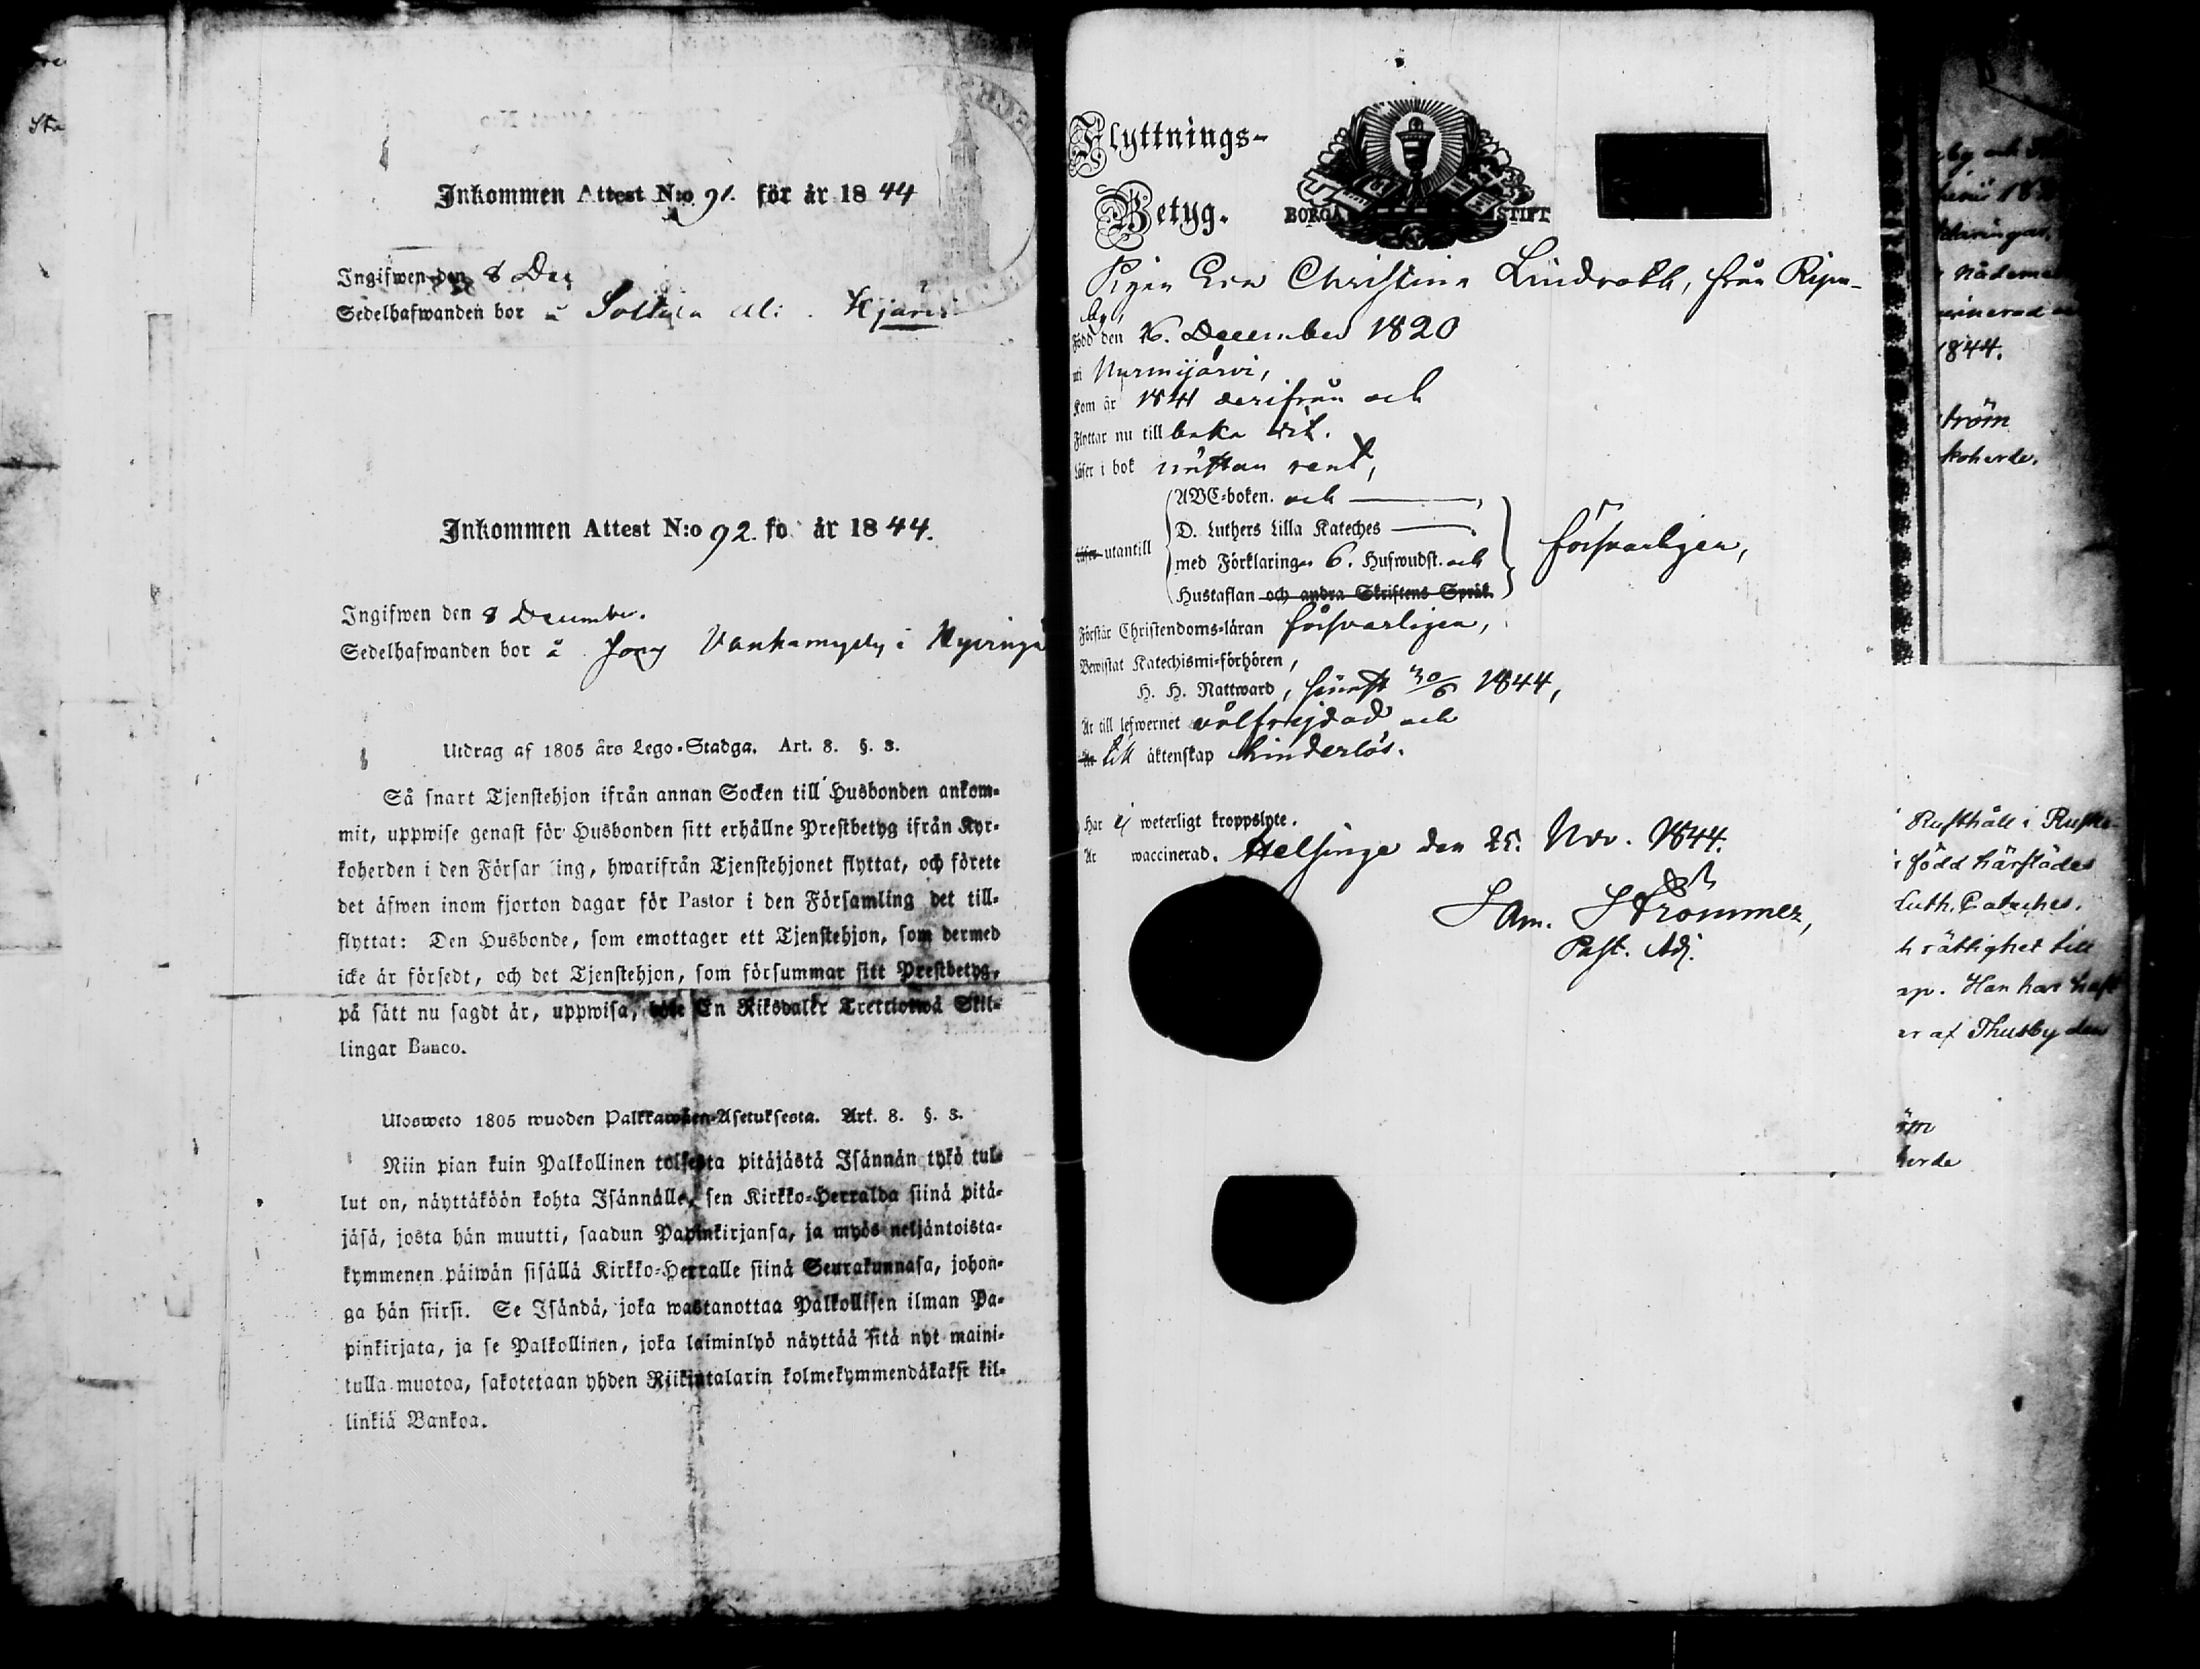 Inkommen Attest N:o 91. för år 1844
Ingifwen den 8 Dec
Sedelhafwanden bor å
Inkommen Attest N:o 92. fö år 1844.
Ingifwen den 8 December.
Sedelhafwanden bor å Vankamyly i
Utdrag af 1805 års Lego-Stadga. Art. 8. §. 3.
Så snart Tjenstehjon ifrån annan Socken till Husbonden ankom-
mit, uppwise genast för Husbonden sitt erhållne Prestbetyg ifrån Kyr-
koherden i den Församling, hwarifrån Tjenstehjonet flyttat, och förete
det äfwen inom fjorton dagar för Pastor i den Församling det till-
flyttat: Den Husbonde, som emottager ett Tjenstehjon, som dermed
icke är försedt, och det Tjenstehjon, som försummar sitt Prestbetyg,
på sätt nu sagdt är, uppwisa, böte En Riksdaler Trettiotwå Skil-
lingar Banco.
Ulosweto 1805 wuoden Palkkawäen-Asetuksesta. Art. 8. §. 3.
Niin pian kuin Palkollinen toisesta pitäjästä Isännän tykö tul-
lut on, näyttäköön kohta Isännälle, sen Kirkko-Herralda siinä pitä-
jäsä, josta hän muutti, saadun Papinkirjansa, ja myös neljäntoista-
kymmenen päiwän sisällä Kirkko-Herralle siinä Seurakunnasa, johon-
ga hän siirsi. Se Isändä, joka wastanottaa Palkollisen ilman Pa-
pinkirjata, ja se Palkollinen, joka laiminlyö näyttää sitä nyt maini-
tulla muotoa, sakotetaan yhden Riikintalarin kolmekymmendäkaksi kil-
linkiä Bankoa.
Flyttnings-
Betyg.
BORGÅ STIFT
Pigan Eva Christina Lindroth, från Ripu-
by,
Född den 16. December 1820
uti Nurmijärvi,
Kom år 1841 derifrån och
Flyttar nu till baka dit.
Läser i bok nästan rent,
ABC-boken. och
D. Luthers Lilla Kateches
läser utantill
med Förklaringar 6. Hufwudst. och
försvarligen,
Hustaflan och andra Skriftens Språk.
Förstår Christendoms-läran försvarligen,
Bewistat Katechismi-förhören,
H. H. Nattward, sinst 30/6 1844,
Är till lefwernet välfrejdad och
Är till äktenskap hinderlös.
Har ej weterligt kroppslyte.
Är waccinerad. Helsinge den 25. Nov. 1844.
Sam. Strömmer,
Past. Adj.
1844.
tröm
koherde.
Rusthåll i
född härstädes
Luth. Cateches.
h rättighet till
ap. Han har haft
er af Thusby den
öm
herde